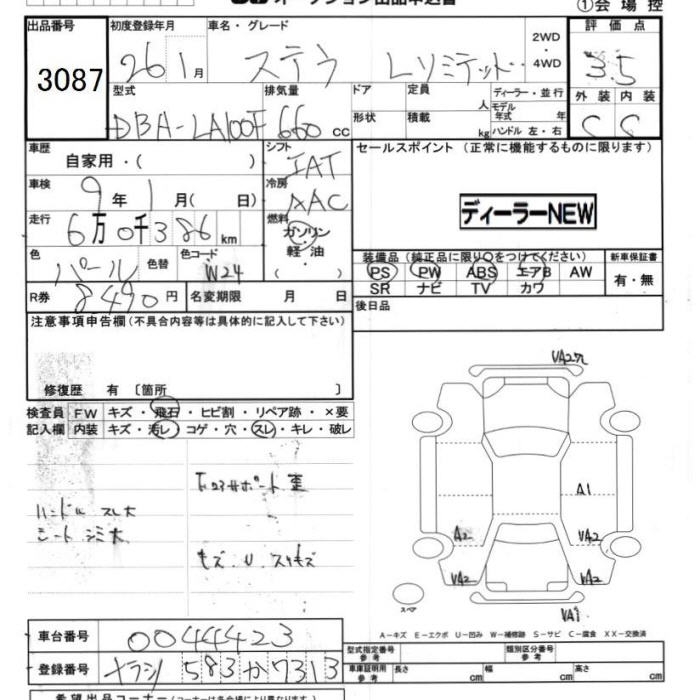 オークション出品申込書
①会場控
出品番号 初度登録年月 車名・グレード 2WD・4WD 評価点
3087 26 1月 ステラ Lリミテッド 3.5
型式 排気量 ドア 定員 人 ディーラー・並行 外装 内装
DBA-LA100F 660cc 形状 積載 kg モデル年式 年 ハンドル 左・右 C C
車歴 シフト セールスポイント (正常に機能するものに限ります)
自家用・( ) IAT
車検 冷房
9年 1月( 日) AAC ディーラーNEW
走行 燃料
6万0千386km ガソリン・軽・油・( )
色 色替 色コード 装備品(純正品に限り○をつけてください) 新車保証書
パール W24 PS PW ABS エアB AW 有・無
SR ナビ TV カワ
R券 8490円 名変期限 月 日 後日品
注意事項申告欄(不具合内容等は具体的に記入して下さい)
修復歴 有 〔箇所 〕
検査員 FW キズ・飛石・ヒビ割・リペア跡・×要
記入欄 内装 キズ・汚レ・コゲ・穴・スレ・キレ・破レ
ハンドル スレ大
シート シミ大
キズ.U.スリキズ
A1
A2 VA2
VA2 VA2
スペア
A-キズ E-エクボ U-凹み W-補修跡 S-サビ C-腐食 XX-交換済
車台番号 0044423
型式指定番号 参考 類別区分番号 参考
登録番号 583 か 7313
車庫証明用 参考 長さ cm 幅 cm 高さ cm
希望出品コーナー(コーナーは各会場により異なります)